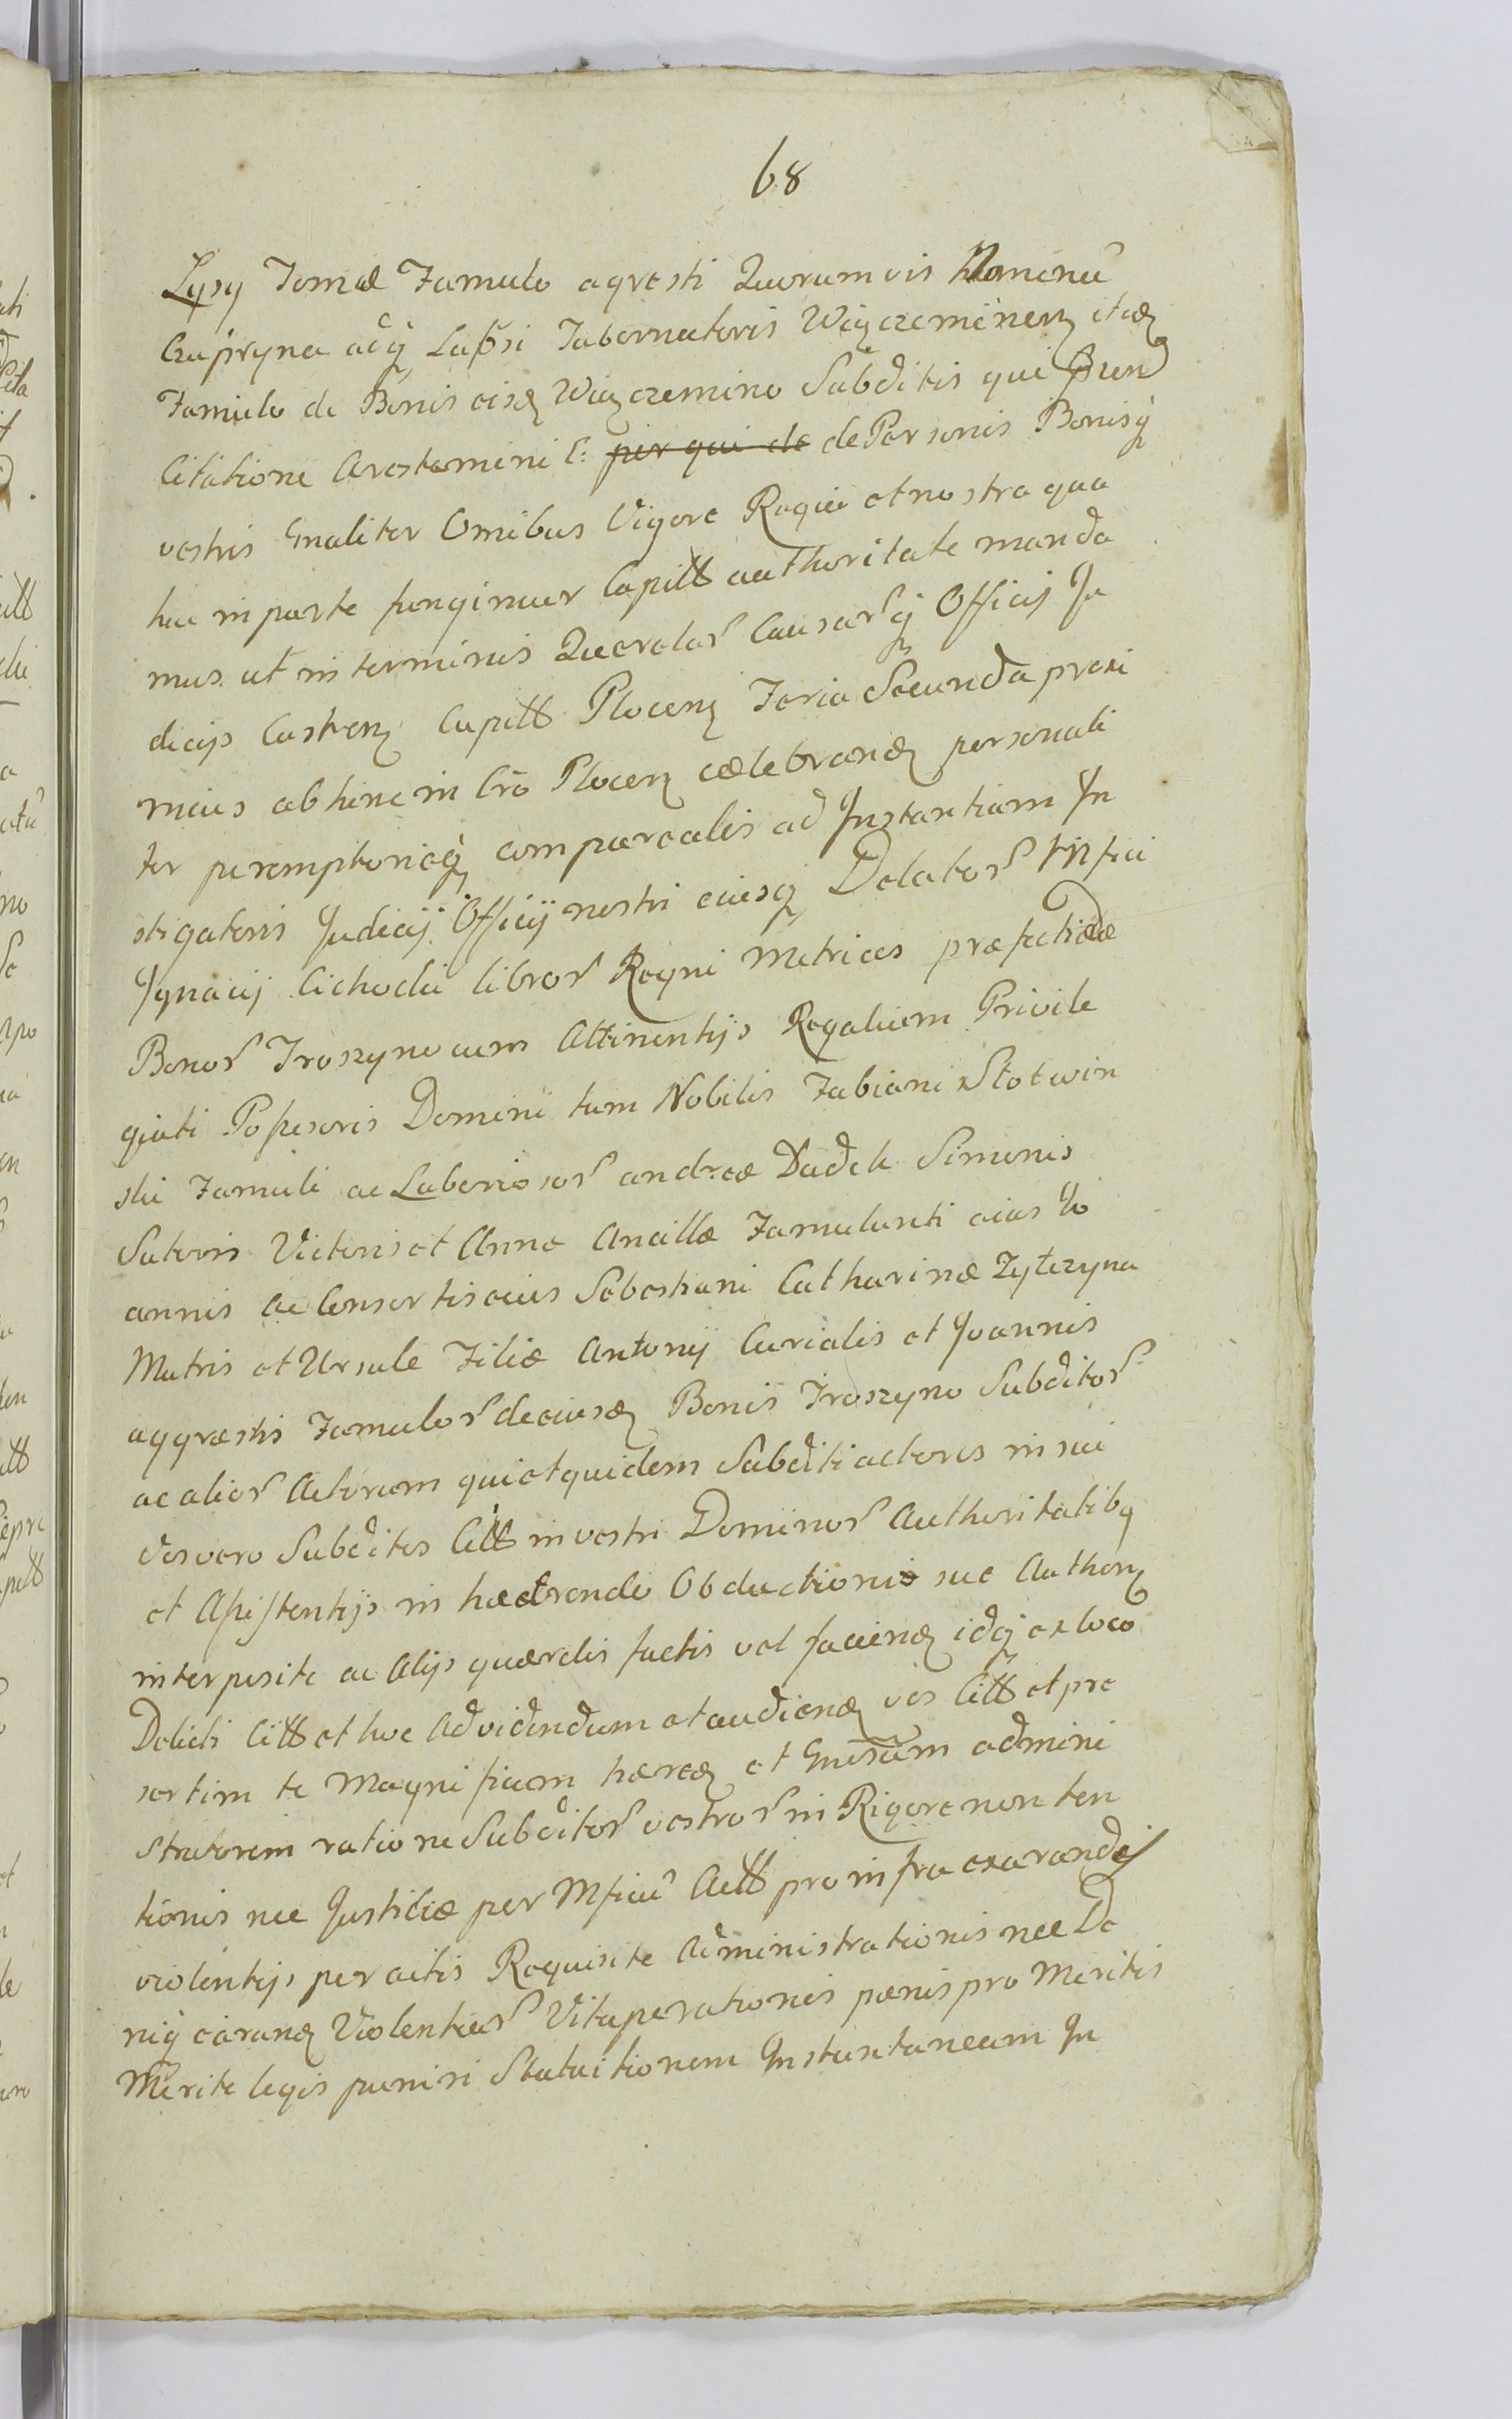 68
Lysy Tomæ Famulo agresti Quorumvis Nominũ
Czupryna ac̃q̨ Lapsi Tabernatoris Wiączeminen̨ itid̨
Famulo de Bonis eisd̨ Wiączemino Subditis qui pren̄
Citatione Arestamini C: per qui de de Personis Bonisq̨
vestris Gnaliter Omibus Vigore Regia et nostra qua
hac in parte fungimur Capitl authoritate manda
mus ut in terminis Querelar̃ Causar̃q̨ Officij Ju
dicijs Castren̨ Capitl Plocen̨ Feria Secunda proxi
mius abhinc in Cro Plocen̨ cælebrand̨ personali
ter peremptorieq̨ compareatis ad Instantiam In
stigatoris Judicij Officij nostri eiusq̨ Delator̃ Mfici
Ignacij Cichocki libror̃ Regni Metrices præfecti
Bonor̃ Troszyno cum Attinentijs Regalium Privile
giati Possesoris Domini tum Nobilis Fabiani Slotwin
ski Famuli ac Laboriosor̃ andreæ Dudek Simonis
Sutoris Victoris et Anna Ancillæ Famulanti eius Jo
annis ac Consortis eius Sebastiani Catharinæ Zytczyna
Matris et Ursule Filiæ Antonij Curialis et Joannis
aggræstis Famulor̃ de eiusd̨ Bonis Troszyno Subditor̃
ac alior̃ Actorum qui et quidem Subditi actores in sui
vos vero Subditos Citl in vestri Dominor̃ Authoritatibq̨
et Assistentijs in hærendo Obductionis sue Authen̨
interposite ac Alijs quærelis factis vel faciend̨ idq̨ ex loco
Delicti Citl et hoc Ad videndum et audiend̨ vos Citl et pre
sertim te Magnificum hæred̨ et Gnesum admini
stratorem ratione Subditor̃ vestror̃ in Rigore non ten
tionis nec Justiciæ per Mficũ Actl pro infra exarandis
violentijs peractis Requisite Administrationis nec De
niq̨ earund̨ Violentiar̃ Vituperationis pænis pro Meritis
Merite legis puniri Statuitionem Instantaneam In